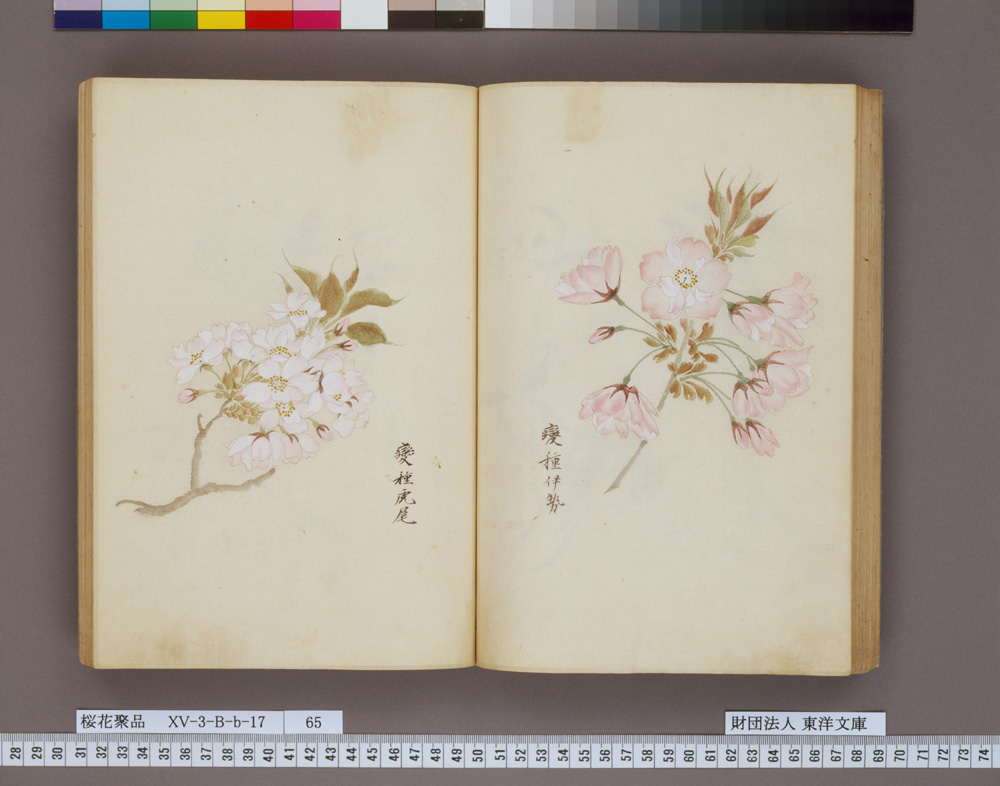 變種伊勢
變種虎尾
桜花聚品 XV-3-B-b-17 65
財団法人 東洋文庫
28 29 30 31 32 33 34 35 36 37 38 39 40 41 42 43 44 45 46 47 48 49 50 51 52 53 54 55 56 57 58 59 60 61 62 63 64 65 66 67 68 69 70 71 72 73 74